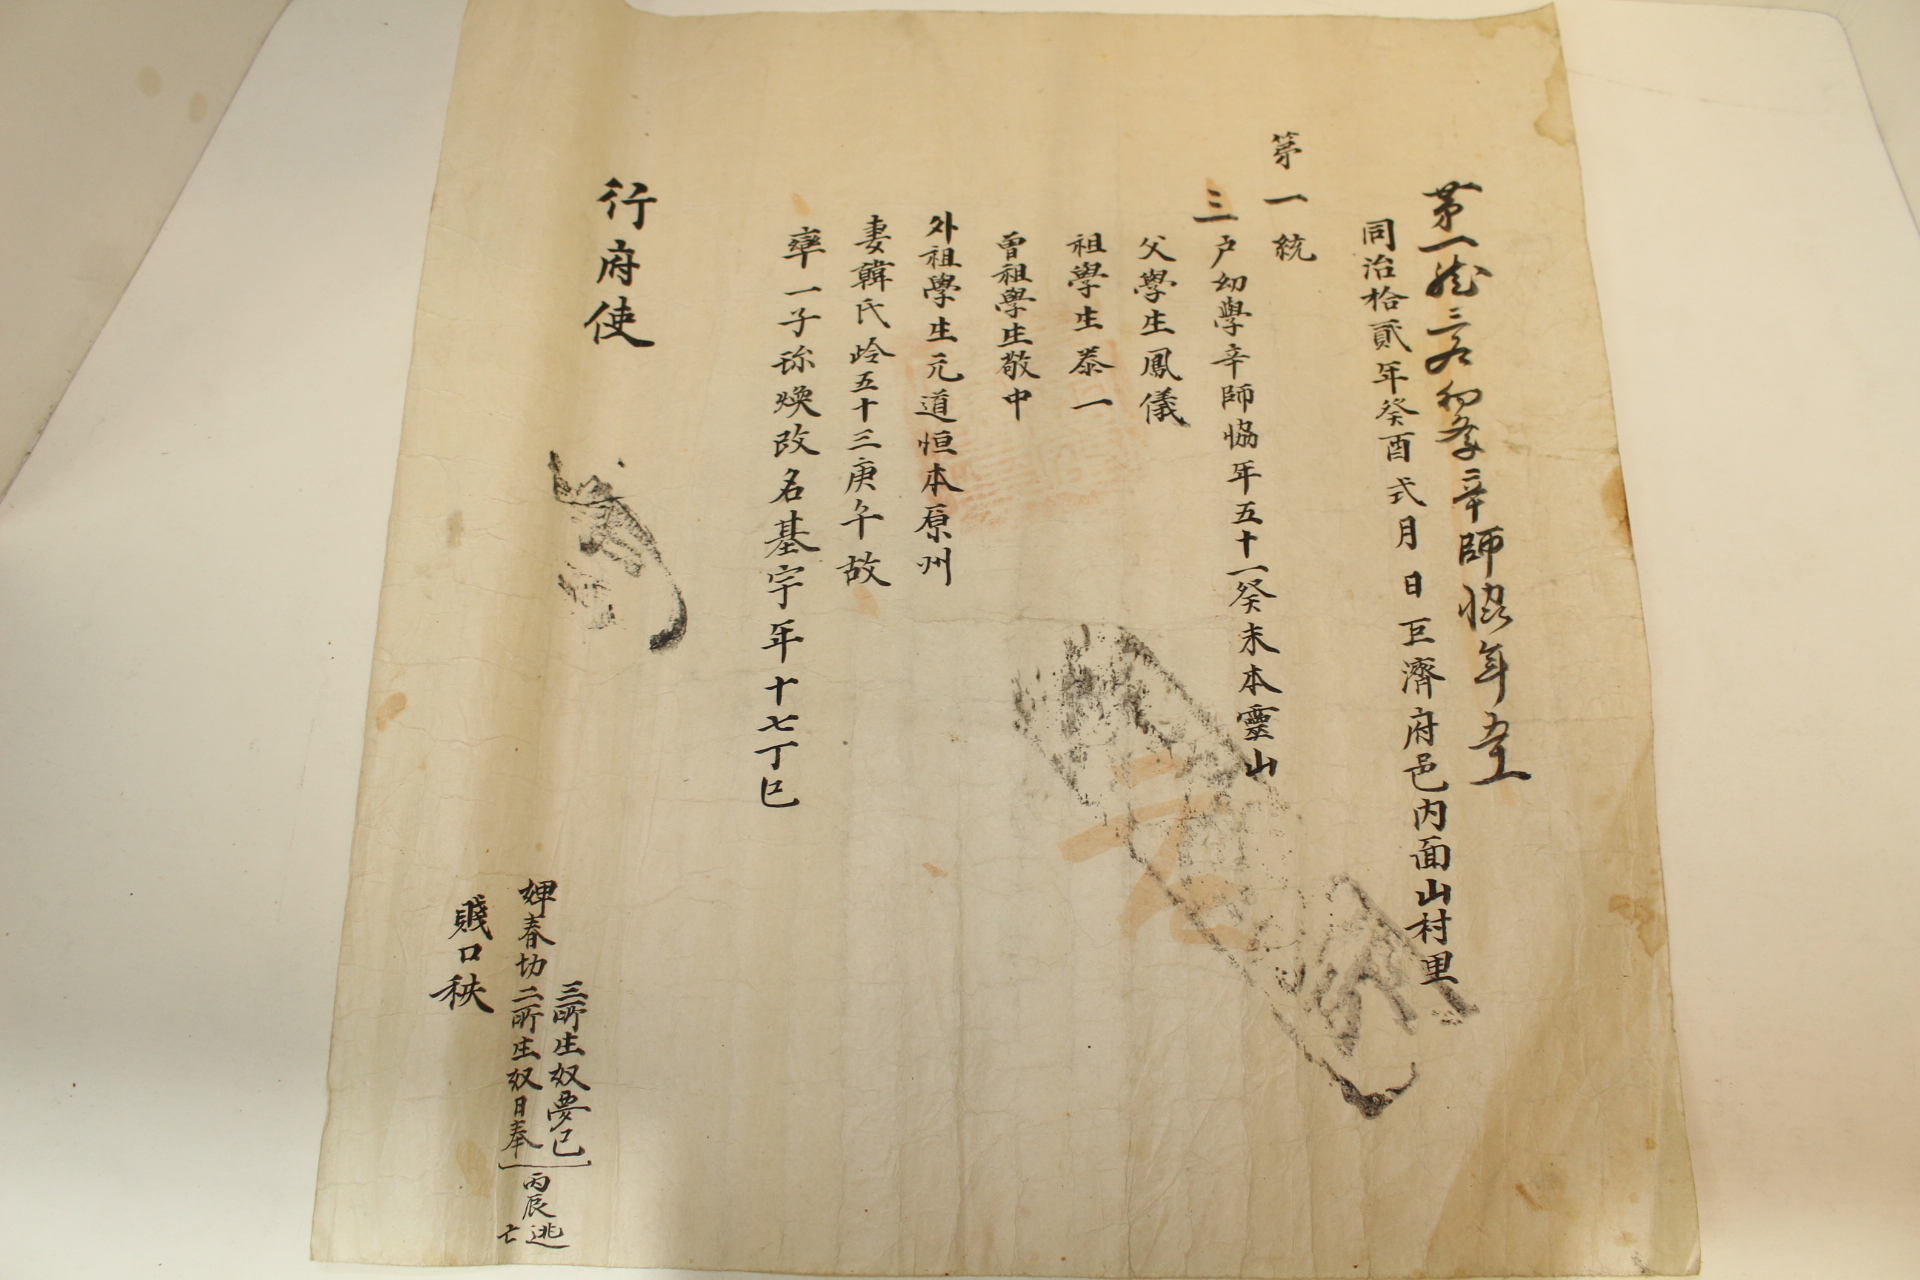 第一統三戶幼學辛師協年五十一
同治拾貳年癸酉式月 日巨濟府邑內面山村里
第一統
三戶幼學辛師協年五十一癸未本靈山
父學生鳳儀
祖學生泰一
曾祖學生敬中
外祖學生元道恒本原州
妻韓氏岭五十三庚午故
率一子珎煥改名基宇年十七丁巳
行府使
三所生奴夢已
婢春切二所生奴日奉
丙辰逃亡
賤口秩